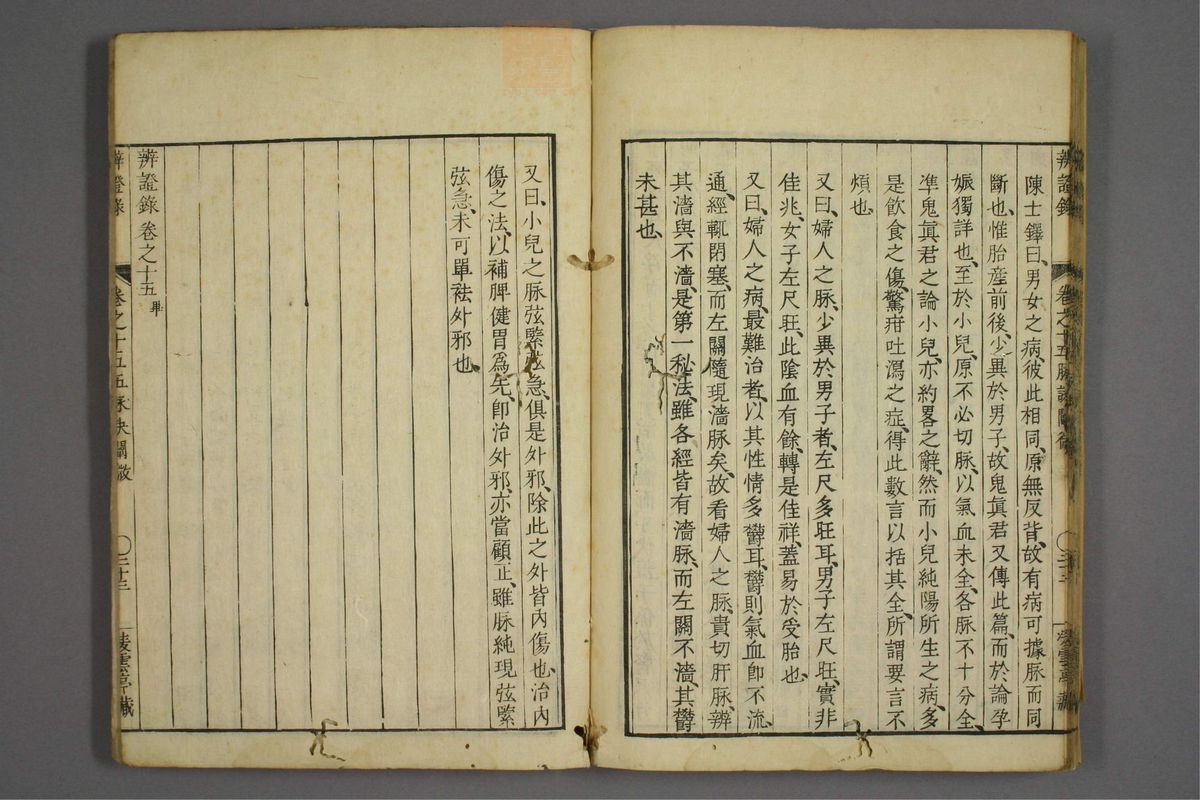 辨證錄
卷之十五
陳士鐸曰、男女之病、彼此相同、原無反背、故有病可據脉而同
斷也、惟胎產前後、少異於男子、故鬼眞君又傳此篇、而於論孕
娠獨詳也、至於小兒、原不必切脉、以氣血未全、各脉不十分全、
凖鬼眞君之論小兒、亦約畧之辭、然而小兒純陽所生之病、多
是飲食之傷、驚疳吐瀉之症、得此數言以括其全、所謂要言不
煩也、
又曰、婦人之脉、少異於男子者、左尺多旺耳、男子左尺旺、實非
佳兆、女子左尺旺、此陰血有餘、轉是佳祥、蓋易於受胎也、
又曰、婦人之病、最難治者、以其性情多欝耳、欝則氣血卽不流
通、經輒閉塞、而左關隨現濇脉矣、故看婦人之脉、貴切肝脉、辨
其濇與不濇、是第一秘法、雖各經皆有濇脉、而左關不濇、其欝
未甚也、
又曰、小兒之脉弦緊弦急、俱是外邪、除此之外皆內傷也、治內
傷之法、以補脾健胃爲先、卽治外邪、亦當顧正、雖脉純現弦緊
弦急、未可單祛外邪也、
辨證錄 卷之十五 畢
辨證錄
卷之十五 五 脉訣闡微
〇三十三
凌雲亭藏